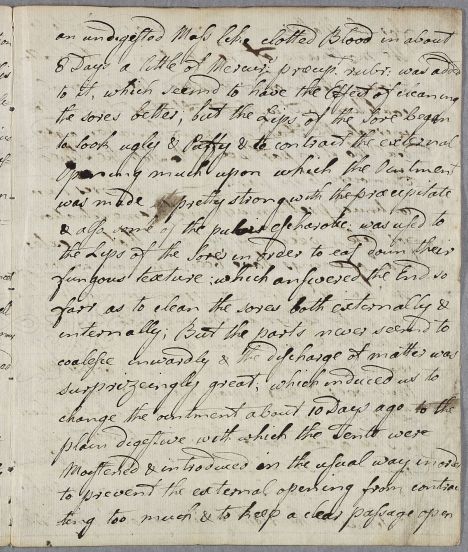 an undigested Mass like clotted Blood in about
8 Days a little of Mercur: præcip: rubr: was added
to it which seemd to have the Effect of cleaning
the sores better, but the Lips of the Sore began
to look ugly & Puffy & to contract the external
Opening much upon which the Ointment
was made pretty strong with the præcipitate
& also some of the pulver escharotic: was used to
the Lips of the Sores in order to eat down their
fungous texture: which answered the End so
farr as to clean the sores both externally &
internally, But the parts never seemd to
coalesce inwardly & the discharge of matter was
surprizeingly great; which induced us to
change the ointment about 10 Days ago to the
plain digestive with which the Tents were
Moistened & introduced in the usual way in order
to prevent the external opening from contrac
ting too much & to keep a clear passage open